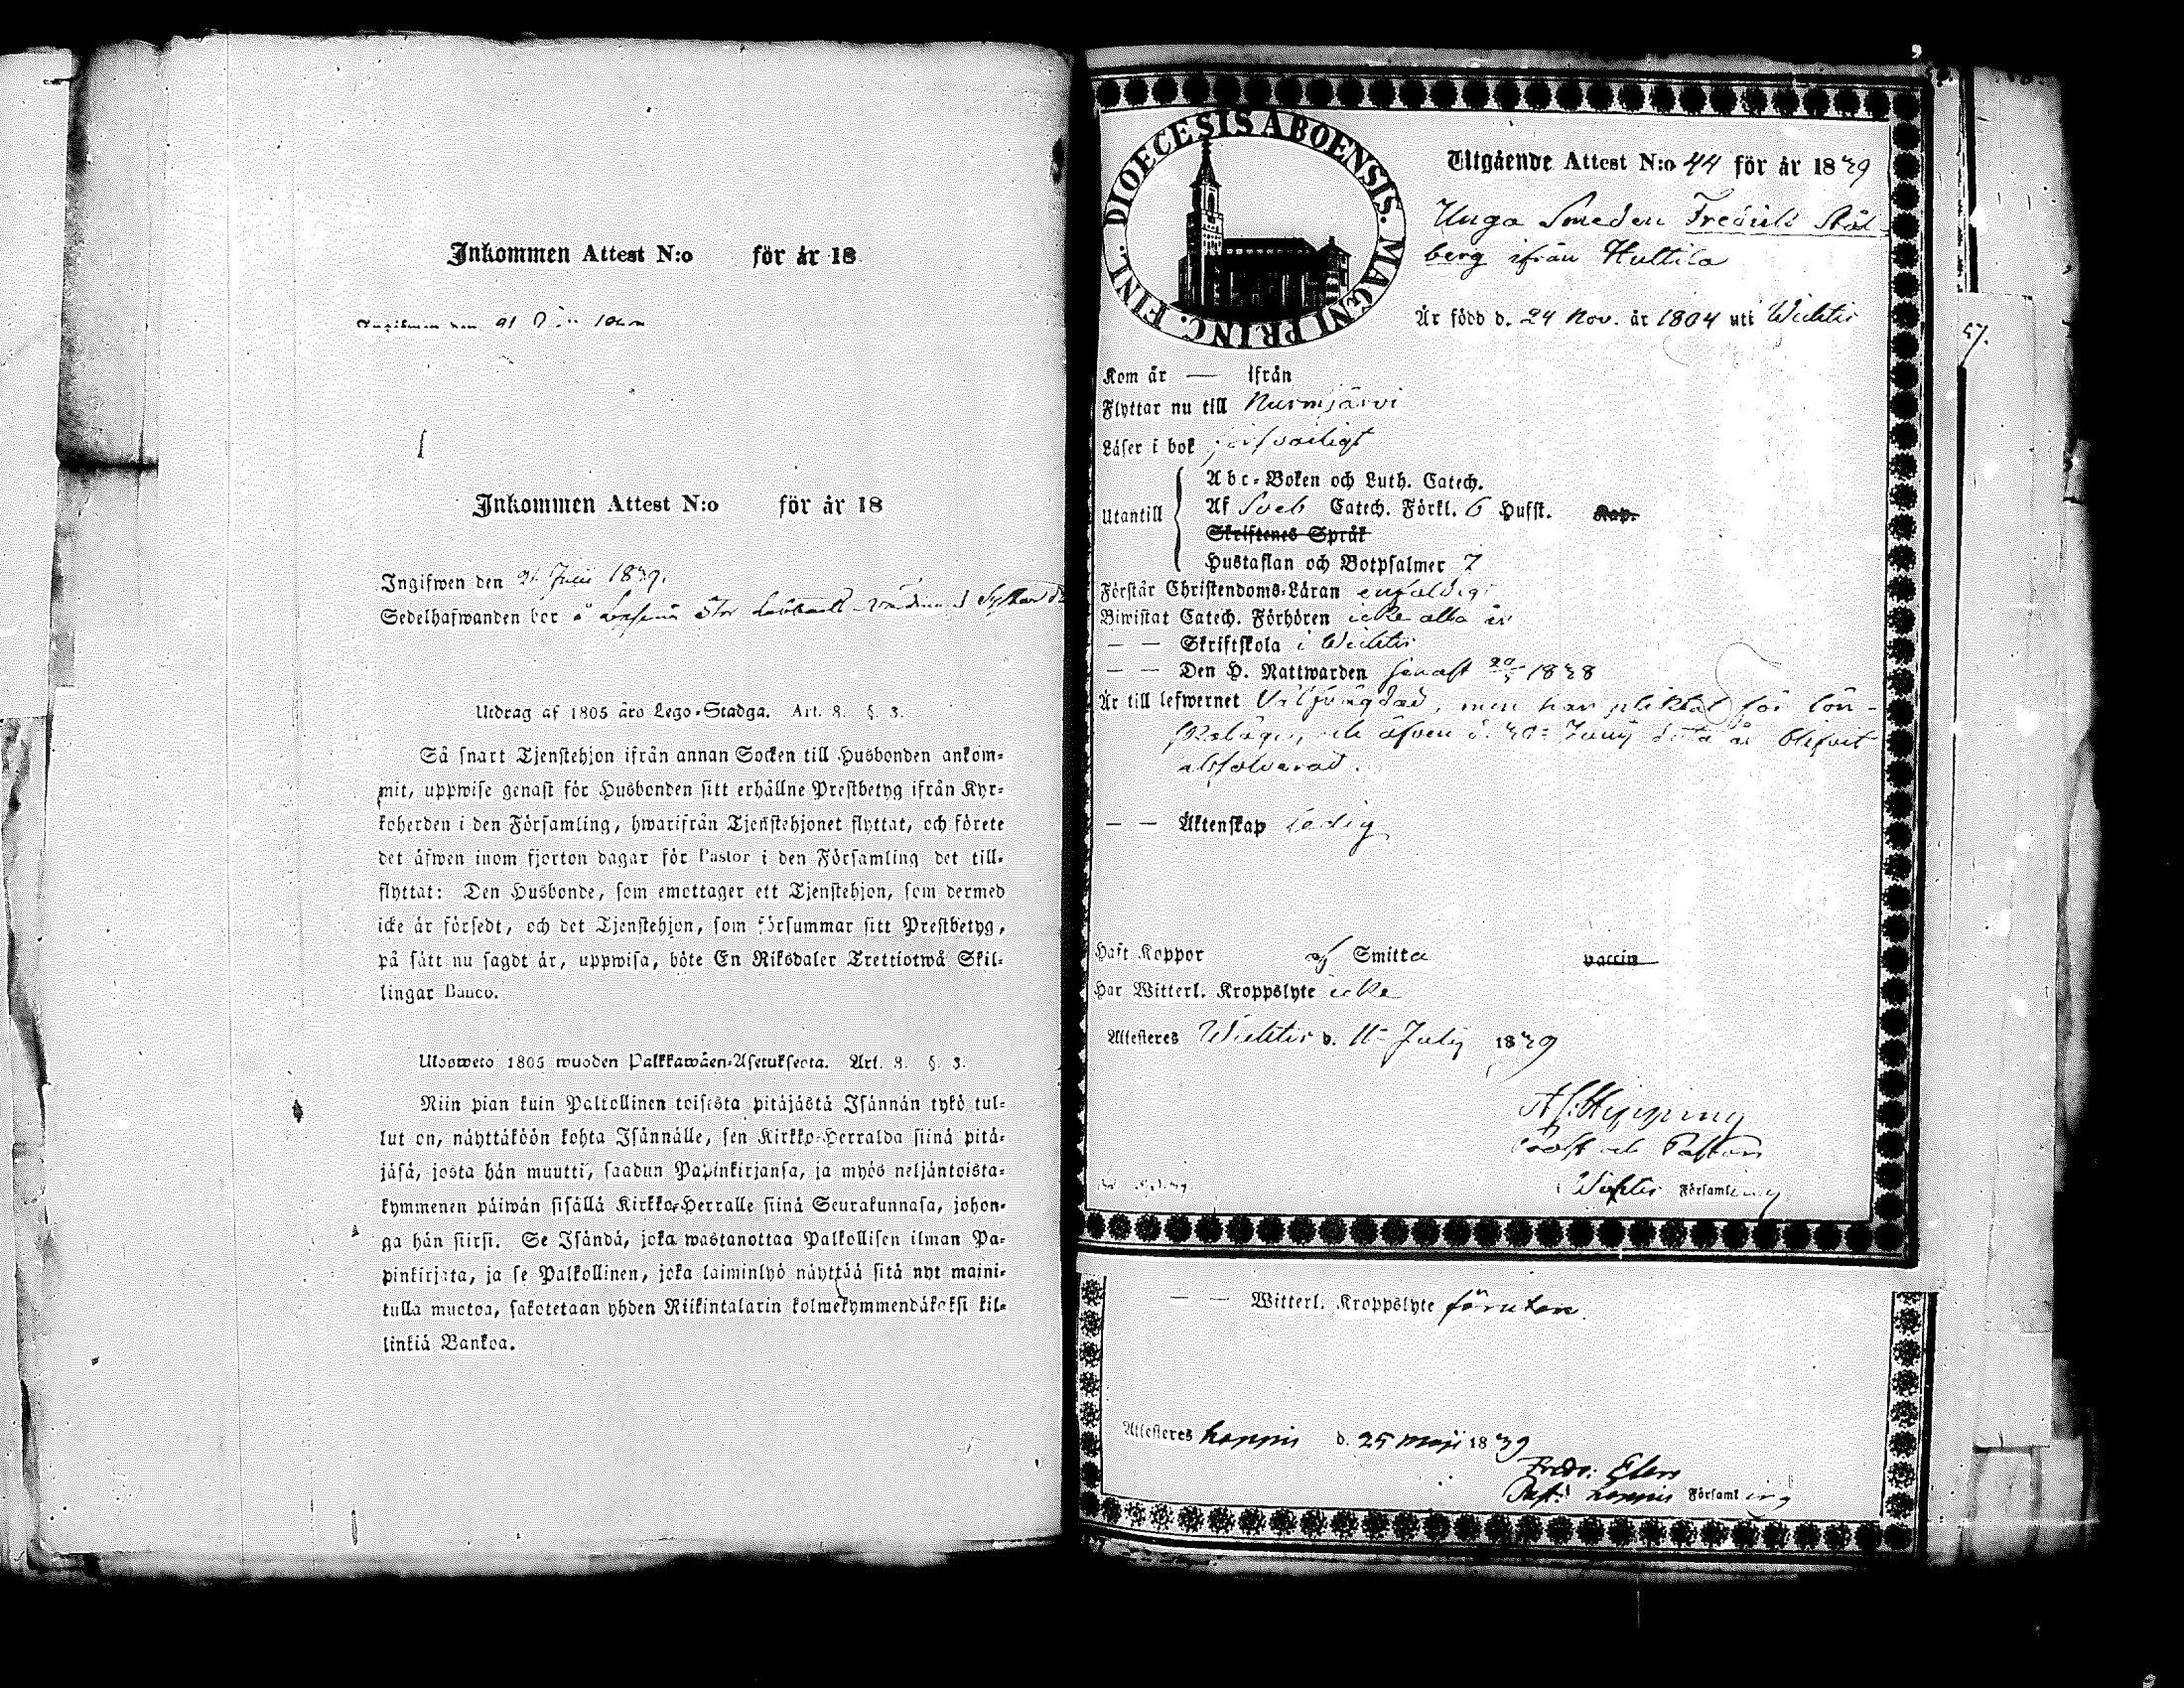 Inkommen Attest N:o för år 18
Inkommen Attest N:o för år 18
Ingifwen den 21 Julii 1839.
Sedelhafwanden bor å
Utdrag af 1805 års Lego-Stadga. Art. 8. §. 3.
Så snart Tjenstehjon ifrån annan Socken till Husbonden ankom-
mit, uppwise genast för Husbonden sitt erhållne Prestbetyg ifrån Kyr-
koherden i den Församling, hwarifrån Tjenstehjonet flyttat, och förete
det äfwen inom fjorton dagar för Pastor i den Församling det till-
flyttat: Den Husbonde, som emottager ett Tjenstehjon, som dermed
icke är försedt, och det Tjenstehjon, som försummar sitt Prestbetyg,
på sätt nu sagdt är, uppwisa, böte En Riksdaler Trettiotwå Skil-
lingar Banco.
Ulosweto 1805 wuoden Palkkawäen-Asetuksesta. Art. 8. §. 3.
Niin pian kuin Palkollinen toisesta pitäjästä Isännän tykö tul-
lut on, näyttäköön kohta Isännälle, sen Kirkko-Herralda siinä pitä-
jäsä, josta hän muutti, saadun Papinkirjansa, ja myös neljäntoista-
kymmenen päiwän sisällä Kirkko-Herralle siinä Seurakunnasa, johon-
ga hän siirsi. Se Isändä, joka wastanottaa Palkollisen ilman Pa-
pinkirjata, ja se Palkollinen, joka laiminlyö näyttää sitä nyt maini-
tulla muotoa, sakotetaan yhden Riikintalarin kolmekymmendäkaksi kil-
linkiä Bankoa.
DIOECESIS ABOENSIS. MAGNI PRINC. FINL.
Utgående Attest N:o 44 för år 1839
Unga Smeden Fredrik Stål-
berg ifrån Huttila
Är född d. 24 Nov. år 1804 uti Wichtis
Kom år — ifrån
Flyttar nu till Nurmijärvi
Läser i bok försvarligt
Utantill
Abc-Boken och Luth. Catech.
Af Sveb Catech. Förkl. 6 Hufst. Kap.
Skriftenes Språk
Hustaflan och Botpsalmer 7
Förstår Christendoms-Läran enfaldigt
Biwistat Catech. Förhören icke alla år
— — Skriftskola i Wichtis
— — Den H. Nattwarden senast 1838
Är till lefwernet Välfrägdad, men har pliktat för löns-
kaläge, och äfven d. 30 Junij detta år blifvit
absolverad.
— — Äktenskap ledig
Haft Koppor af Smitta vaccin
Har Witterl. Kroppslyte icke
Attesteres Wichtis d. 11 Julij 1839
Hipping
Prost och Pastor
i Wichtis Församling
57.
— — Witterl. Kroppslyte förutan.
Attesteres Loppis d. 25 Maji 1839
Fredr: Elers
Past: Loppis Församling